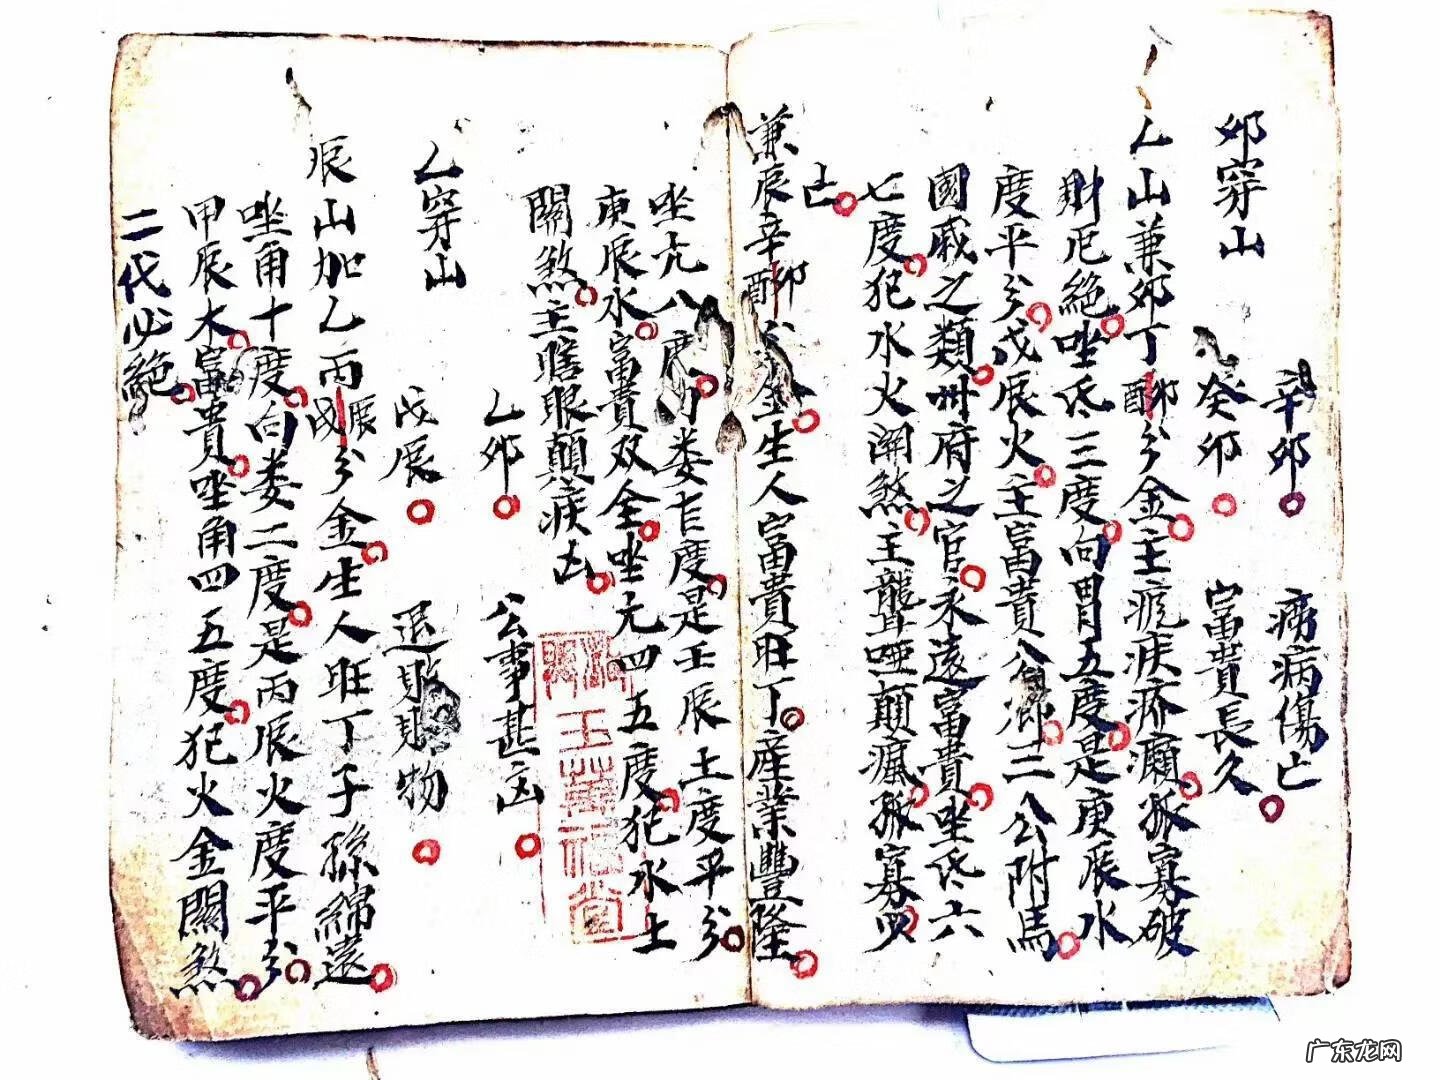 辛卯 癆病傷亡
卯穿山 癸卯 富貴長久
乙山兼卯丁酉卯分金主疾癲孤寡破
財厄絕坐氐三度向胃五度是庚辰水
度平分戊辰火主富貴八卿三公附馬
國戚之類州府之官永遠富貴坐氐六
七度犯水火関煞主聾啞顛瘋孤寡
亡
兼辰辛酉卯分金生人富貴旺丁產業豐隆
坐亢八度向婁七度是壬辰土度平分
庚辰水富貴双全坐亢四五度犯水土
關煞主瞎眼顛疾凶
乙卯 公事甚凶
乙穿山 戊辰 退財物
辰山加乙丙辰戌分金生人旺丁子孫綿遠
坐角十度向婁二度是丙辰火度平分
甲辰木富貴坐角四五度犯火金關煞
二代必絕
玉
堂
广东龙网